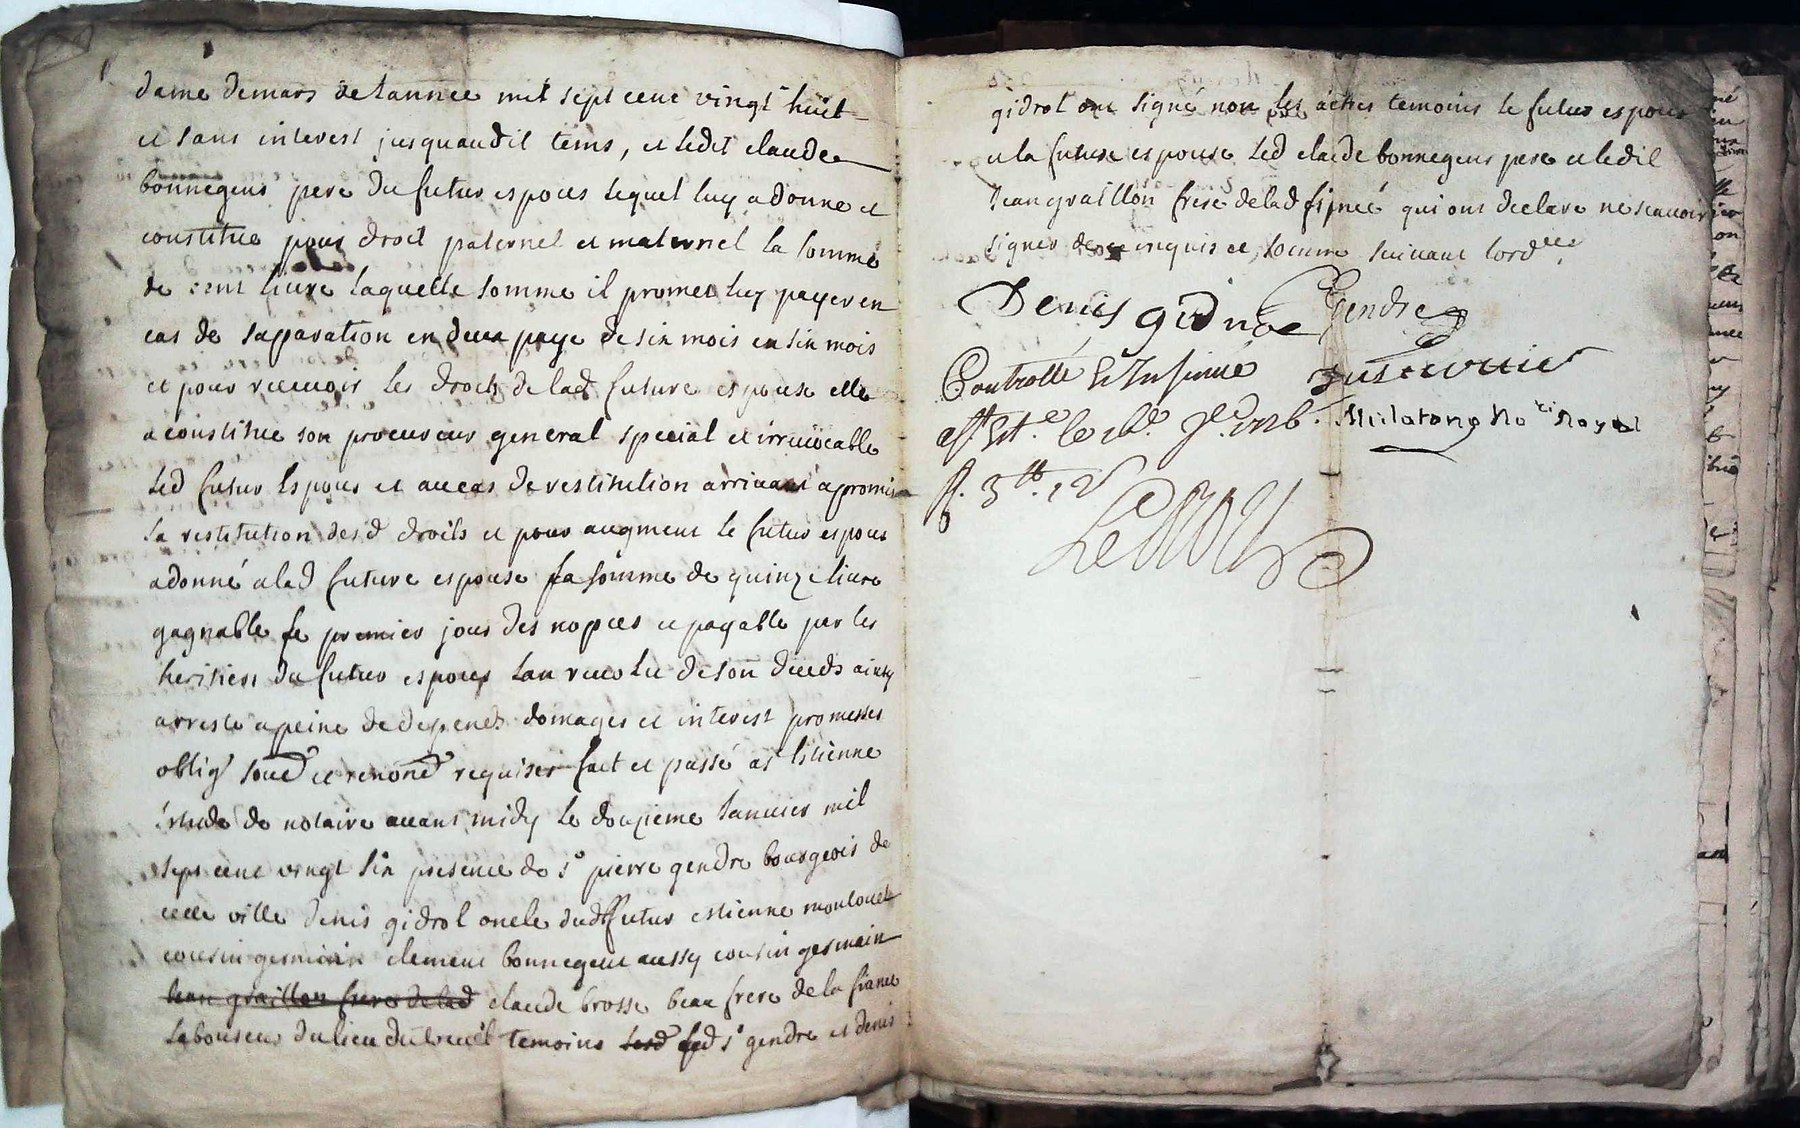 dame demars de lannee mil sept cent vingt huit
et sans interest jusquaudit tems, et ledit claude
bonnegens pere du futur espous lequel luy a donne et
constitue pour droit paternel et maternel la somme
de cent livre laquelle somme il promet luy payer en
cas de saparation en deux paye de six mois en six mois
et pour recevoir les droits de lad future espouse elle
a constitue son procureur general special et irrevocable
led futur espous et au cas de restitution arrivant a promis
la restitution desd droits et pour augment le futur espous
a donné a lad future espouse la somme de quinze livre
gagnable le premier jour des nopces et payable par les
heritiers du futur espous lan revolu de son deceds ainsy
arreste a peine de depends domages et interest promesses
oblig soud et renond requises fait et passé a st estienne
estude de notaire avant midy le douzieme janvier mil
sept cent vingt six presence de sr pierre gendre bourgeois de
cette ville denis gidrol oncle dudt futur estienne moulouet
cousin germain clement bonnegent aussy cousin germain
jean graillon frere de lad claude brosse beau frere de la fiance
laboureur du lieu du treuil temoins lesd led sr gendre et denis
gidrol ont signé non les autres temoins le futur espous
et la future espouse led claude bonnegens pere et ledit
jean graillon frere de lad fiancé qui ont declare ne scavoir
signer de ce enquis et somme suivant lordce
Denis gidrol Gendre
Controllé & Insinué
a St Ete le
Notre Royal
R. 3tt. 12s
Leroy